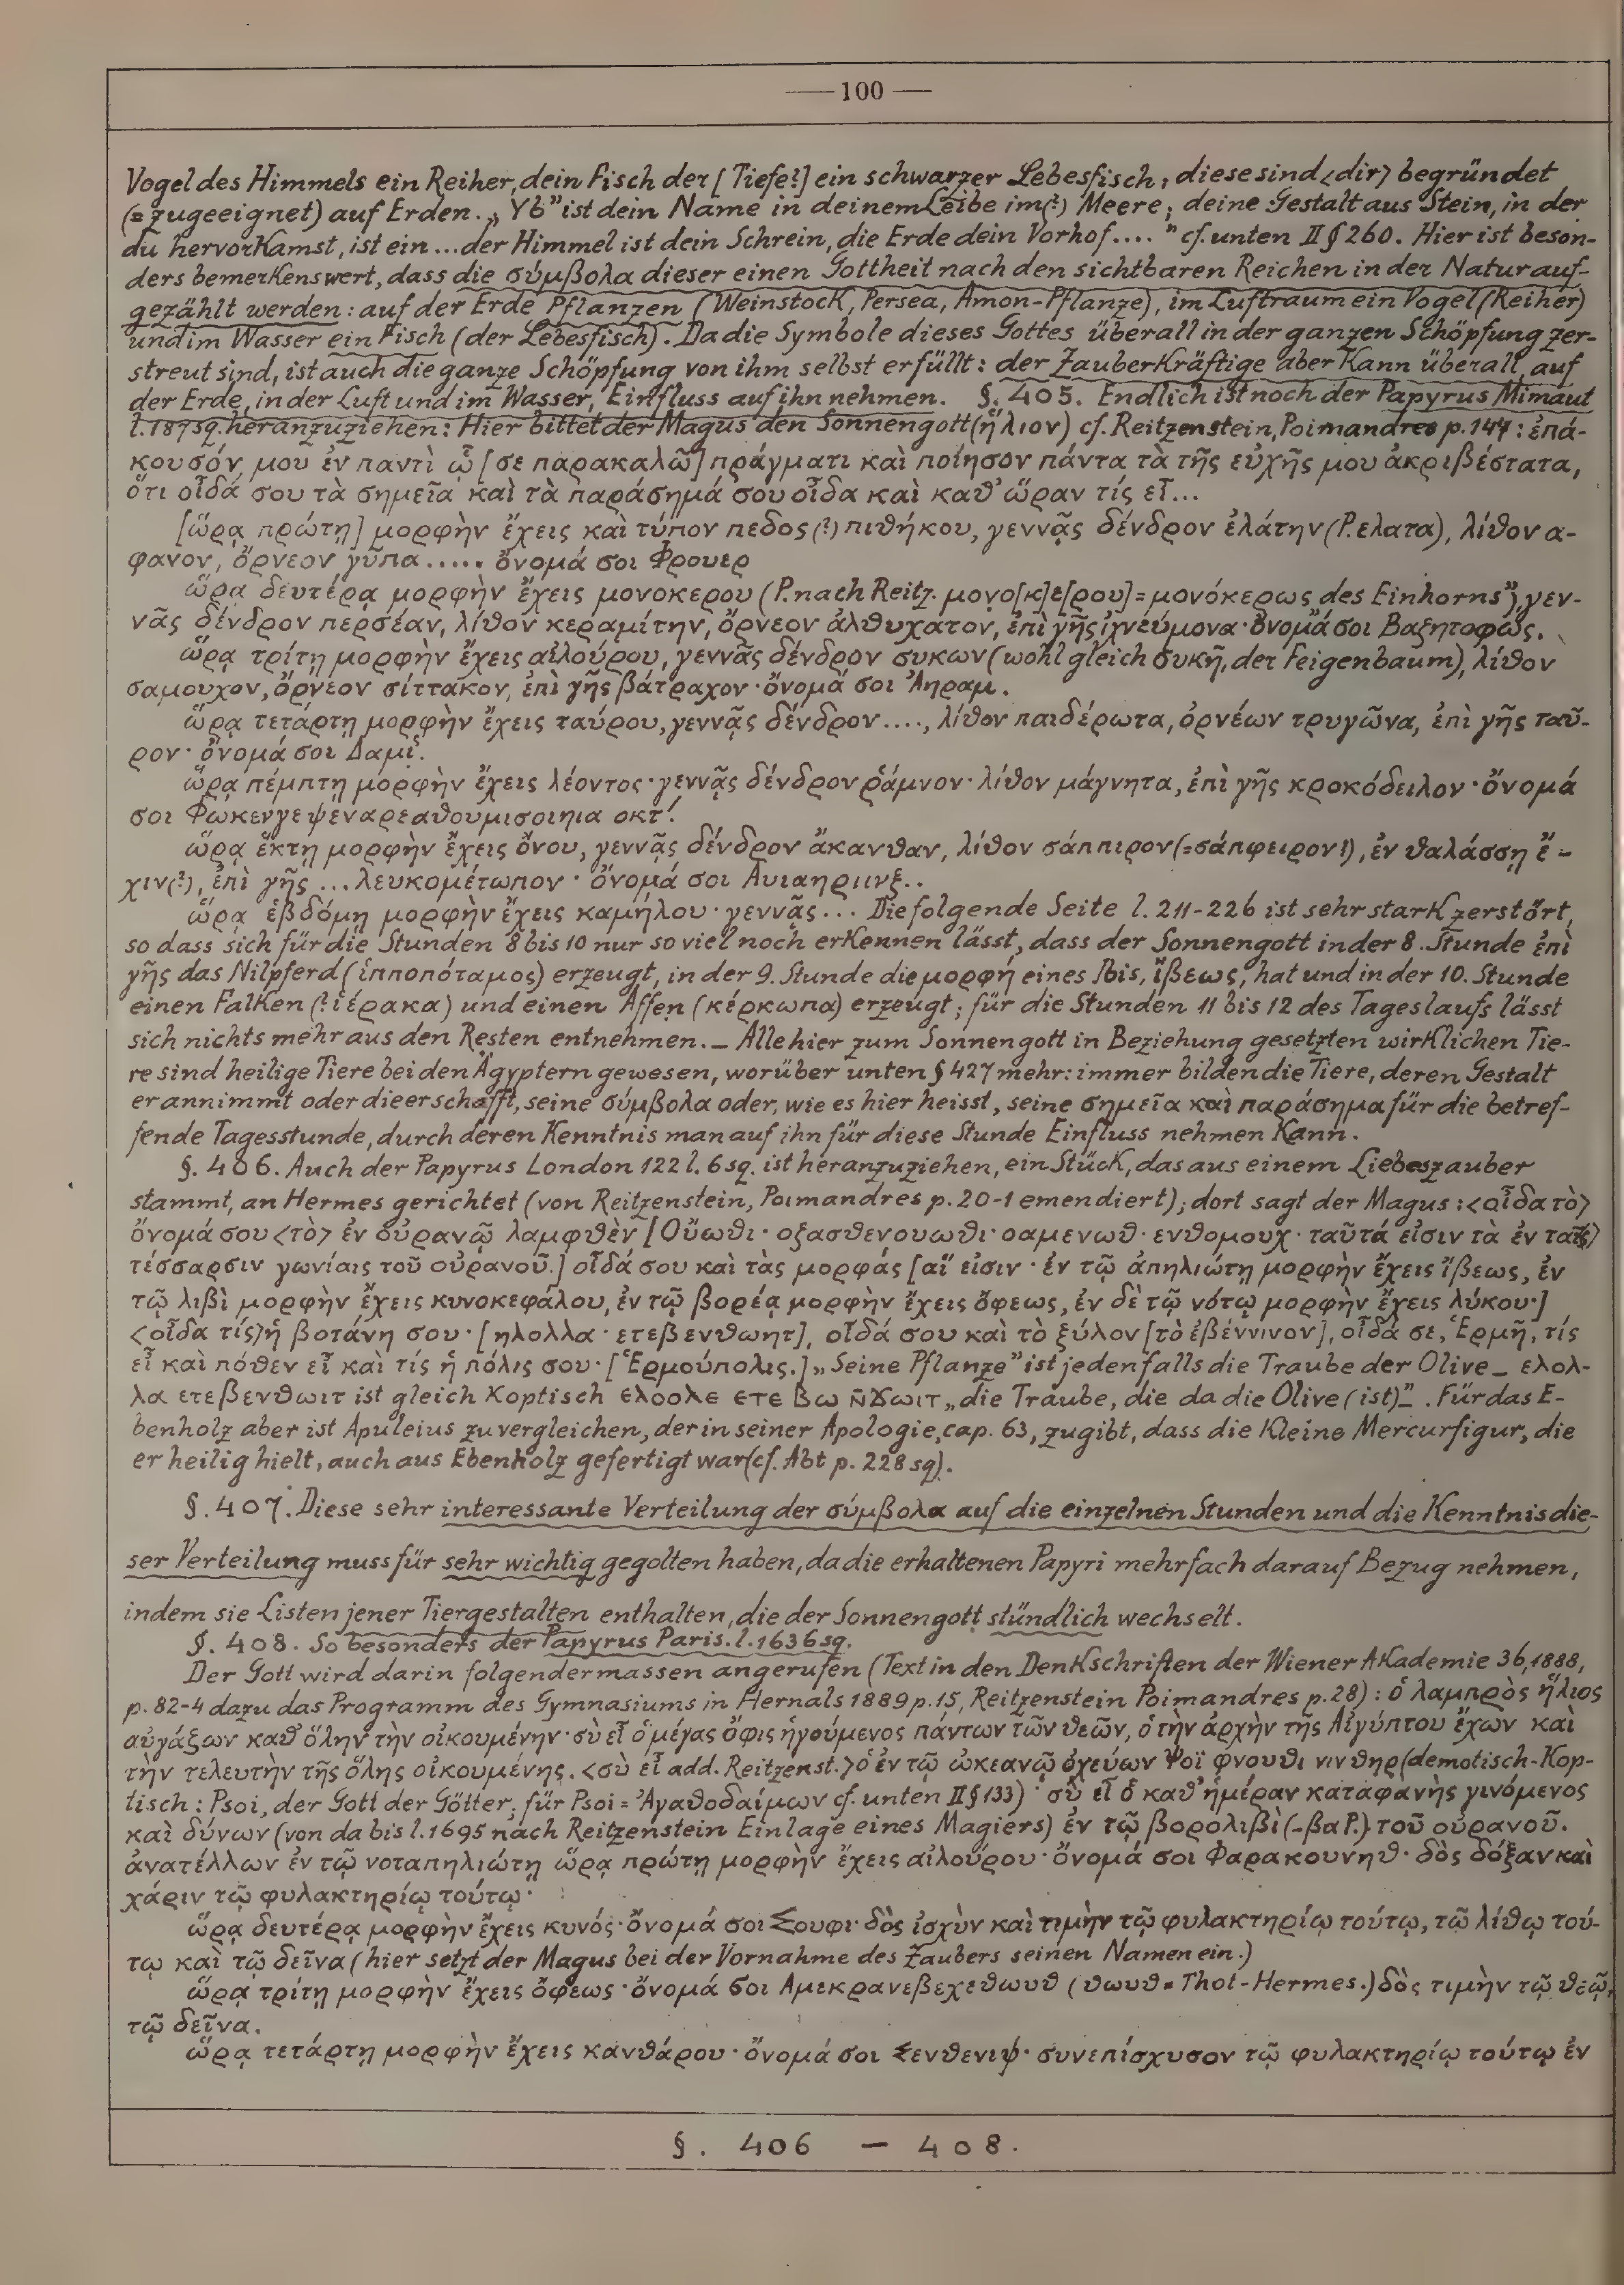 — 100 —
Vogel des Himmels ein Reiher, dein Fisch der [Tiefe?] ein schwarzer Lebesfisch, diese sind <dir> begründet
(= zugeeignet) auf Erden. „Yb” ist dein Name in deinem Leibe im(?) Meere; deine Gestalt aus Stein, in der
du hervorkamst, ist ein ... der Himmel ist dein Schrein, die Erde dein Vorhof .... ” cf. unten II § 260. Hier ist beson-
ders bemerkenswert, dass die σύμβολα dieser einen Gottheit nach den sichtbaren Reichen in der Natur auf-
gezählt werden: auf der Erde Pflanzen (Weinstock, Persea, Amon-Pflanze), im Luftraum ein Vogel (Reiher)
und im Wasser ein Fisch (der Lebesfisch). Da die Symbole dieses Gottes überall in der ganzen Schöpfung zer-
streut sind, ist auch die ganze Schöpfung von ihm selbst erfüllt: der Zauberkräftige aber kann überall, auf
der Erde, in der Luft und im Wasser, Einfluss auf ihn nehmen. §. 405. Endlich ist noch der Papyrus Mimaut
l. 187 sq. heranzuziehen: Hier bittet der Magus den Sonnengott (ἥλιον) cf. Reitzenstein, Poimandres p. 147: ἐπά-
κουσόν μου ἐν παντὶ ᾧ [σε παρακαλῶ] πράγματι καὶ ποίησον πάντα τὰ τῆς εὐχῆς μου ἀκριβέστατα,
ὅτι οἶδά σου τὰ σημεῖα καὶ τὰ παράσημά σου οἶδα καὶ καθ' ὥραν τίς εἶ...
[ὥρᾳ πρώτῃ] μορφὴν ἔχεις καὶ τύπον πεδος (?) πιθήκου, γεννᾷς δένδρον ἐλάτην (P. ελατα), λίθον α-
φανον, ὄρνεον γῦπα ..... ὄνομά σοι Φρουερ
ὥρᾳ δευτέρᾳ μορφὴν ἔχεις μονοκερου (P. nach Reitz. μονο[κ]ε[ρου] = μονόκερως des Einhorns”), γεν-
νᾷς δένδρον περσέαν, λίθον κεραμίτην, ὄρνεον ἀλθυχατον, ἐπὶ γῆς ἰχνεύμονα · ὄνομά σοι Βαζητοφως.
ὥρᾳ τρίτῃ μορφὴν ἔχεις αἰλούρου, γεννᾷς δένδρον συκων (wohl gleich συκῆ, der Feigenbaum), λίθον
σαμουχον, ὄρνεον σίττακον, ἐπὶ γῆς βάτραχον · ὄνομά σοι Ἀηραμ.
ὥρᾳ τετάρτῃ μορφὴν ἔχεις ταύρου, γεννᾷς δένδρον ...., λίθον παιδέρωτα, ὀρνέων τρυγῶνα, ἐπὶ γῆς ταῦ-
ρον · ὄνομά σοι Δαμι.
ὥρᾳ πέμπτῃ μορφὴν ἔχεις λέοντος · γεννᾷς δένδρον ῥάμνον · λίθον μάγνητα, ἐπὶ γῆς κροκόδειλον · ὄνομά
σοι Φωκενγεψεναρεαθουμισοιηια οκτ!
ὥρᾳ ἕκτῃ μορφὴν ἔχεις ὄνου, γεννᾷς δένδρον ἄκανθαν, λίθον σάππιρον (= σάπφειρον!), ἐν θαλάσσῃ ἔ-
χιν (?), ἐπὶ γῆς ... λευκομέτωπον · ὄνομά σοι Αυιαηριινξ..
ὥρᾳ ἑβδόμῃ μορφὴν ἔχεις καμήλου · γεννᾷς ... Die folgende Seite l. 211-226 ist sehr stark zerstört,
so dass sich für die Stunden 8 bis 10 nur so viel noch erkennen lässt, dass der Sonnengott in der 8. Stunde ἐπὶ
γῆς das Nilpferd (ἱπποπόταμος) erzeugt, in der 9. Stunde die μορφή eines Ibis, ἴβεως, hat und in der 10. Stunde
einen Falken (? ἱέρακα) und einen Affen (κέρκωπα) erzeugt; für die Stunden 11 bis 12 des Tageslaufs lässt
sich nichts mehr aus den Resten entnehmen. – Alle hier zum Sonnengott in Beziehung gesetzten wirklichen Tie-
re sind heilige Tiere bei den Ägyptern gewesen, worüber unten § 427 mehr: immer bilden die Tiere, deren Gestalt
er annimmt oder die er schafft, seine σύμβολα oder, wie es hier heisst, seine σημεῖα καὶ παράσημα für die betref-
fende Tagesstunde, durch deren Kenntnis man auf ihn für diese Stunde Einfluss nehmen kann.
§. 406. Auch der Papyrus London 122 l. 6 sq. ist heranzuziehen, ein Stück, das aus einem Liebeszauber
stammt, an Hermes gerichtet (von Reitzenstein, Poimandres p. 20-1 emendiert); dort sagt der Magus: <οἶδα τὸ>
ὄνομά σου <τὸ> ἐν οὐρανῷ λαμφθὲν [Οὔωθι · οξασθενουωθι · οαμενωθ · ενθομουχ · ταῦτά εἰσιν τὰ ἐν ταῖς>
τέσσαρσιν γωνίαις τοῦ οὐρανοῦ.] οἶδά σου καὶ τὰς μορφάς [αἵ εἰσιν · ἐν τῷ ἀπηλιώτῃ μορφὴν ἔχεις ἴβεως, ἐν
τῷ λιβὶ μορφὴν ἔχεις κυνοκεφάλου, ἐν τῷ βορέᾳ μορφὴν ἔχεις ὄφεως, ἐν δὲ τῷ νότῳ μορφὴν ἔχεις λύκου·]
<οἶδα τίς> ἡ βοτάνη σου · [ηλολλα · ετεβενθωητ], οἶδά σου καὶ τὸ ξύλον [τὸ ἐβέννινον], οἶδά σε, Ἑρμῆ, τίς
εἶ καὶ πόθεν εἶ καὶ τίς ἡ πόλις σου · [Ἑρμούπολις.] „Seine Pflanze” ist jedenfalls die Traube der Olive – ελολ-
λα ετεβενθωιτ ist gleich koptisch ελοολε ετε βω ⲛ̄ϫωιτ „die Traube, die da die Olive (ist)” –. Für das E-
benholz aber ist Apuleius zu vergleichen, der in seiner Apologie, cap. 63, zugibt, dass die kleine Mercurfigur, die
er heilig hielt, auch aus Ebenholz gefertigt war (cf. Abt p. 228 sq).
§. 407. Diese sehr interessante Verteilung der σύμβολα auf die einzelnen Stunden und die Kenntnis die-
ser Verteilung muss für sehr wichtig gegolten haben, da die erhaltenen Papyri mehrfach darauf Bezug nehmen,
indem sie Listen jener Tiergestalten enthalten, die der Sonnengott stündlich wechselt.
§. 408. So besonders der Papyrus Paris. l. 1636 sq.
Der Gott wird darin folgendermassen angerufen (Text in den Denkschriften der Wiener Akademie 36, 1888,
p. 82-4 dazu das Programm des Gymnasiums in Hernals 1889 p. 15, Reitzenstein Poimandres p. 28): ὁ λαμπρὸς ἥλιος
αὐγάζων καθ' ὅλην τὴν οἰκουμένην · σὺ εἶ ὁ μέγας ὄφις ἡγούμενος πάντων τῶν θεῶν, ὁ τὴν ἀρχὴν τῆς Αἰγύπτου ἔχων καὶ
τὴν τελευτὴν τῆς ὅλης οἰκουμένης. <σὺ εἶ add. Reitzenst.> ὁ ἐν τῷ ὠκεανῷ ὀχεύων Ψοϊ φνουθι νινθηρ (demotisch-kop-
tisch: Psoi, der Gott der Götter; für Psoi = Ἀγαθοδαίμων cf. unten II § 133) · σὺ εἶ ὁ καθ' ἡμέραν καταφανὴς γινόμενος
καὶ δύνων (von da bis l. 1695 nach Reitzenstein Einlage eines Magiers) ἐν τῷ βορολιβὶ (-βα P.) τοῦ οὐρανοῦ.
ἀνατέλλων ἐν τῷ νοταπηλιώτῃ ὥρᾳ πρώτῃ μορφὴν ἔχεις αἰλούρου · ὄνομά σοι Φαρακουνηθ · δὸς δόξαν καὶ
χάριν τῷ φυλακτηρίῳ τούτῳ ·
ὥρᾳ δευτέρᾳ μορφὴν ἔχεις κυνός · ὄνομά σοι Σουφι · δὸς ἰσχὺν καὶ τιμὴν τῷ φυλακτηρίῳ τούτῳ, τῷ λίθῳ τού-
τῳ καὶ τῷ δεῖνα (hier setzt der Magus bei der Vornahme des Zaubers seinen Namen ein.)
ὥρᾳ τρίτῃ μορφὴν ἔχεις ὄφεως · ὄνομά σοι Αμεκρανεβεχεθωυθ (θωυθ = Thot-Hermes.) δὸς τιμὴν τῷ θεῷ,
τῷ δεῖνα.
ὥρᾳ τετάρτῃ μορφὴν ἔχεις κανθάρου · ὄνομά σοι Σενθενιψ · συνεπίσχυσον τῷ φυλακτηρίῳ τούτῳ ἐν
§. 406 – 408.